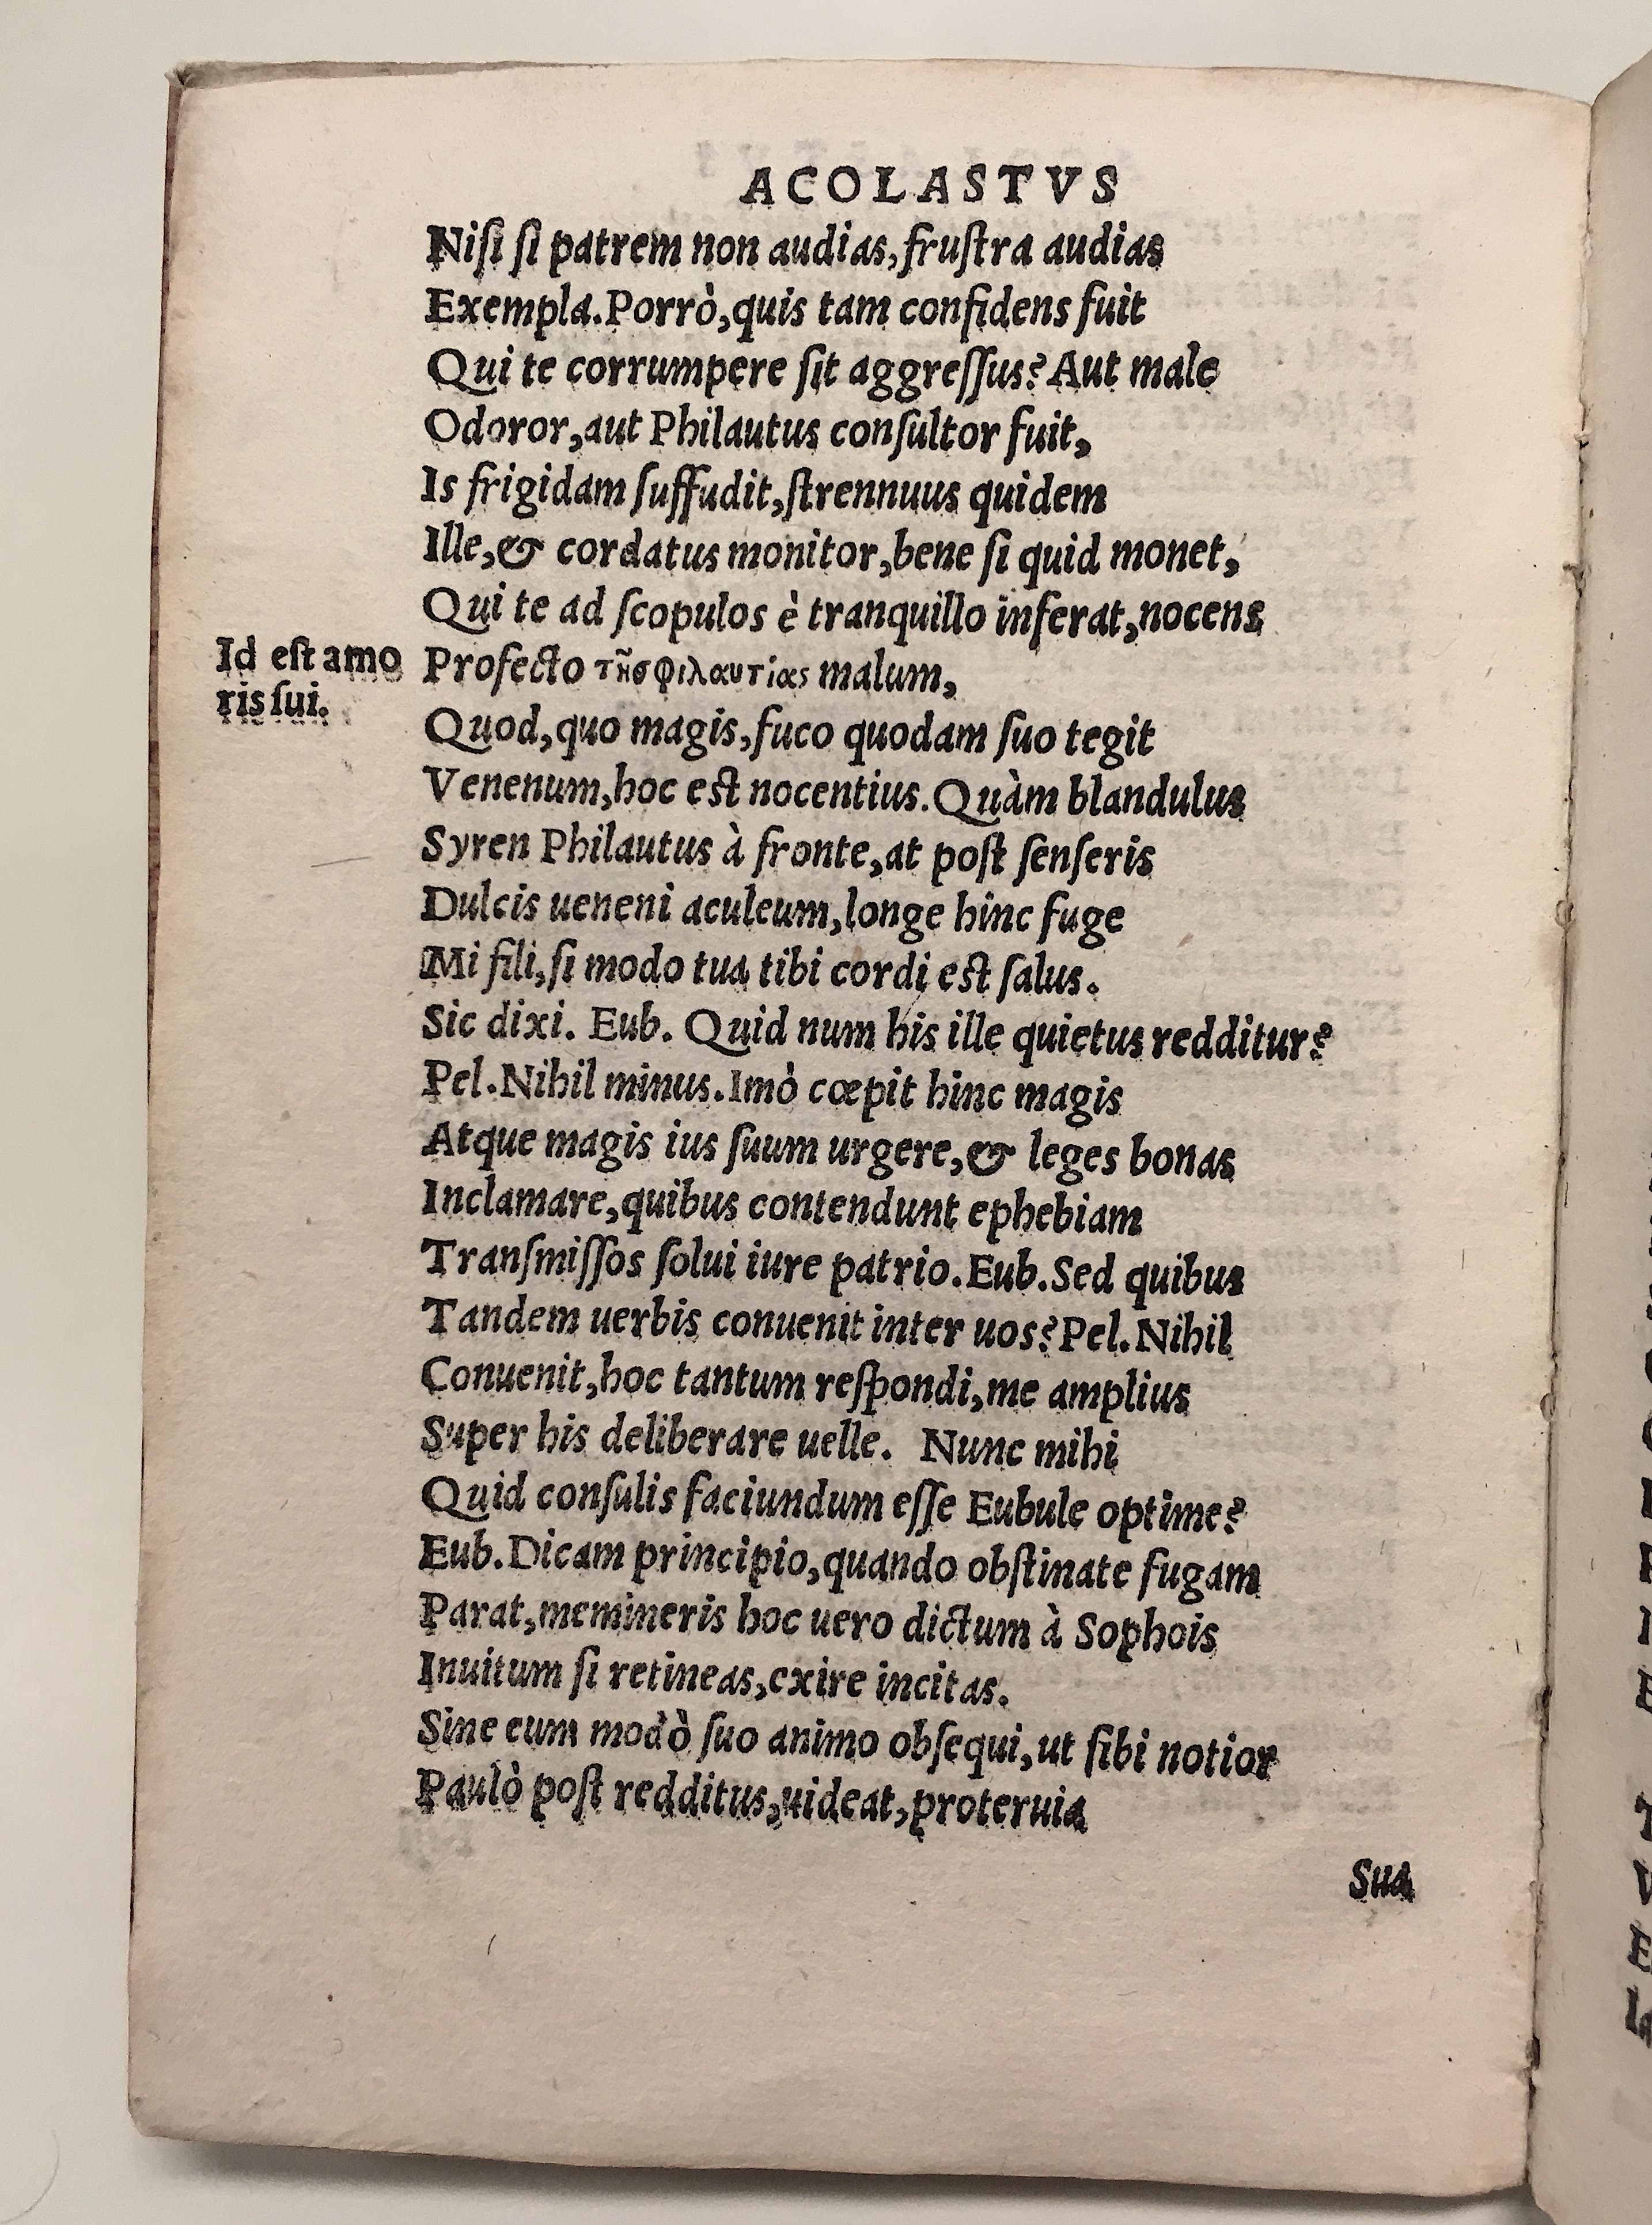 ACOLASTVS
Niſi ſi patrem non audias, fruſtra audias
Exempla. Porrò, quis tam confidens fuit
Qui te corrumpere ſit aggreſſus? Aut male
Odoror, aut Philautus conſultor fuit,
Is frigidam ſuffudit, ſtrennuus quidem
Ille, & cordatus monitor, bene ſi quid monet,
Qui te ad ſcopulos è tranquillo inferat, nocens
Id eſt amo
ris ſui.
Profecto τῆσ φιλαυτίας malum,
Quod, quo magis, fuco quodam ſuo tegit
Venenum, hoc eſt nocentius. Quàm blandulus
Syren Philautus à fronte, at poſt ſenſeris
Dulcis ueneni aculeum, longe hinc fuge
Mi fili, ſi modo tua tibi cordi eſt ſalus.
Sic dixi. Eub. Quid num his ille quietus redditur?
Pel. Nihil minus. Imò cœpit hinc magis
Atque magis ius ſuum urgere, & leges bonas
Inclamare, quibus contendunt ephebiam
Tranſmiſſos ſolui iure patrio. Eub. Sed quibus
Tandem uerbis conuenit inter uos? Pel. Nihil
Conuenit, hoc tantum reſpondi, me amplius
Super his deliberare uelle. Nunc mihi
Quid conſulis faciundum eſſe Eubule optime?
Eub. Dicam principio, quando obſtinate fugam
Parat, memineris hoc uero dictum à Sophois
Inuitum ſi retineas, exire incitas.
Sine eum modò ſuo animo obſequi, ut ſibi notior
Paulò poſt redditus, uideat, proteruia
Sua